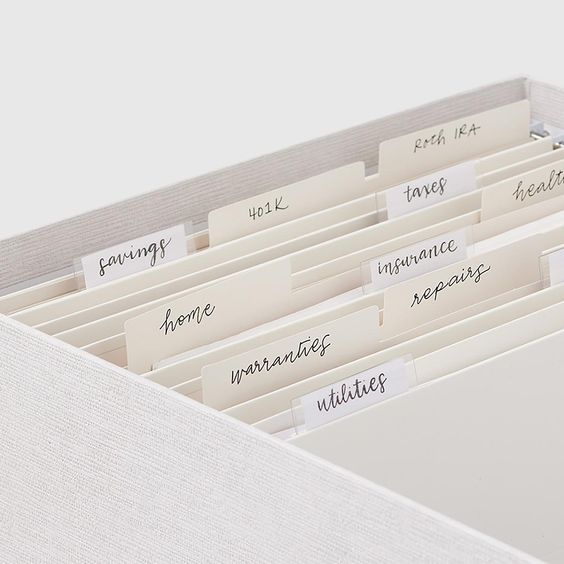 Roth IRA
401K
taxes
health
savings
insurance
home
repairs
warranties
utilities